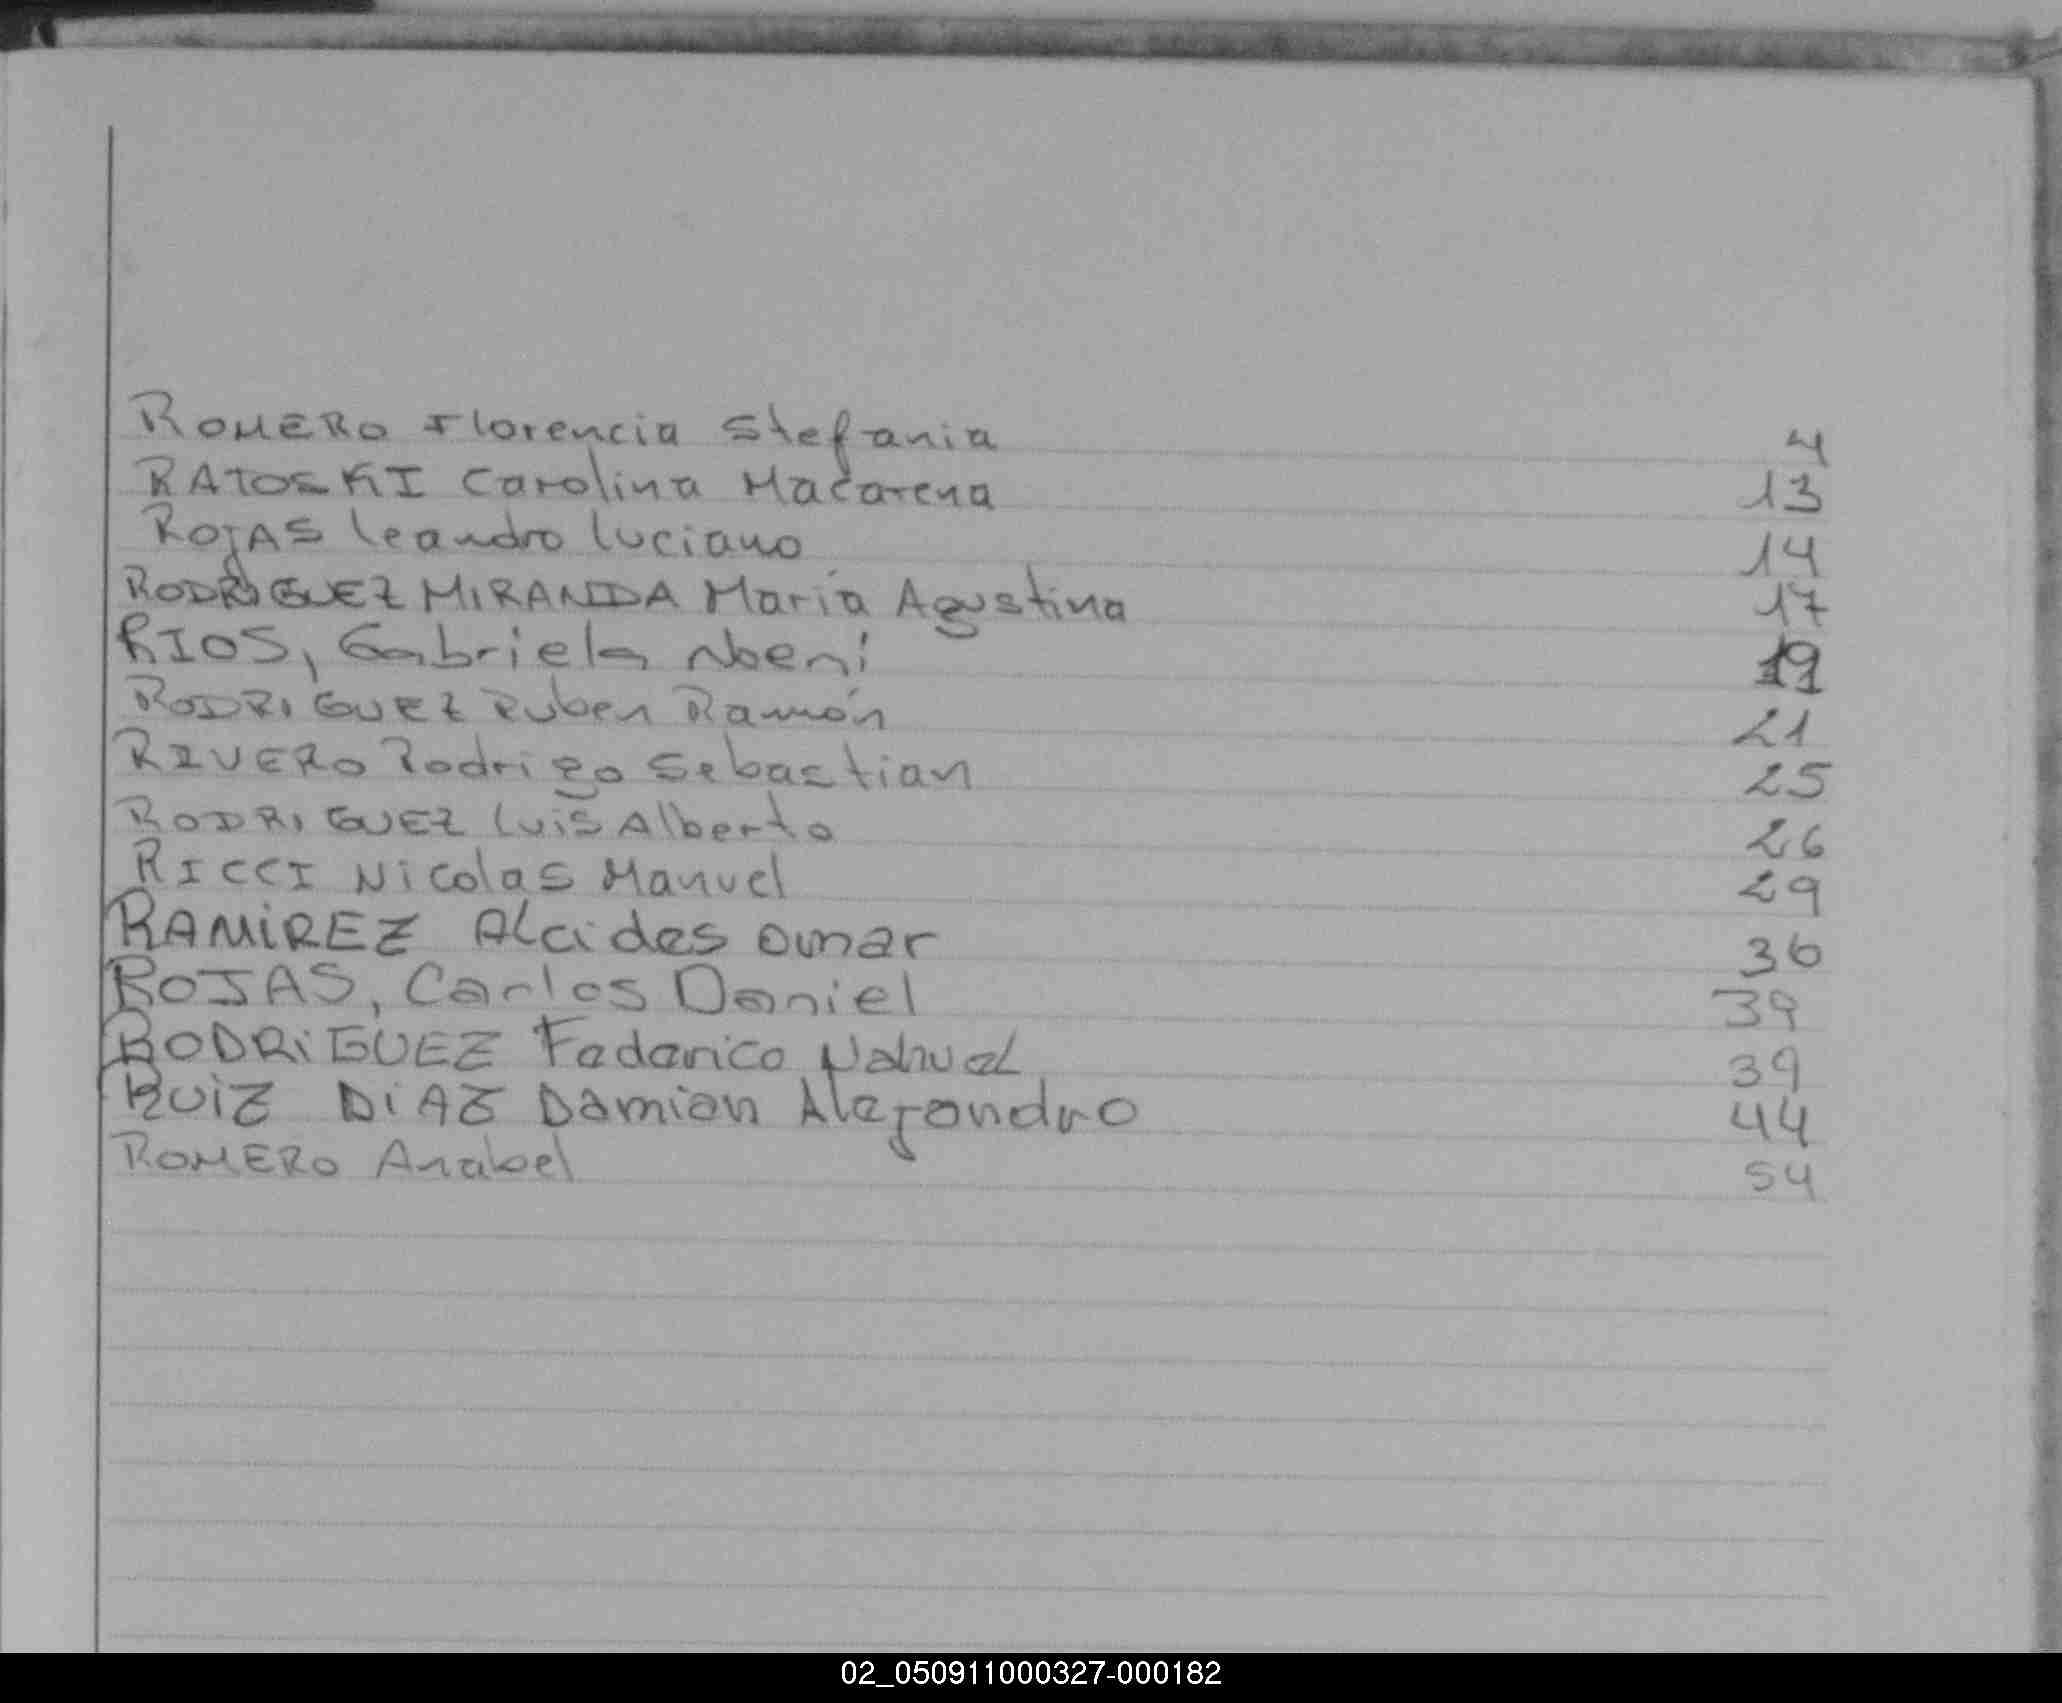 ROMERO Florencia Stefania 4
RATOSKI Carolina Macarena 13
ROJAS Leandro Luciano 14
RODRIGUEZ MIRANDA María Agustina 17
RIOS, Gabriela Noemí 19
RODRIGUEZ Ruben Ramón 21
RIVERO Rodrigo Sebastian 25
RODRIGUEZ Luis Alberto 26
RICCI Nicolas Manuel 29
RAMIREZ Alcides Omar 36
ROJAS, Carlos Daniel 39
RODRIGUEZ Federico Nahuel 39
RUIZ DIAZ Damian Alejandro 44
ROMERO Anabel 54
02_050911000327-000182